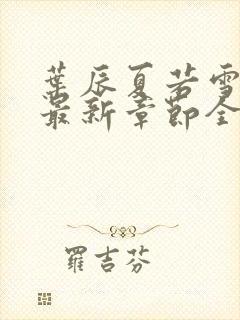 葉辰夏若雪
最新章節全
羅吉芬